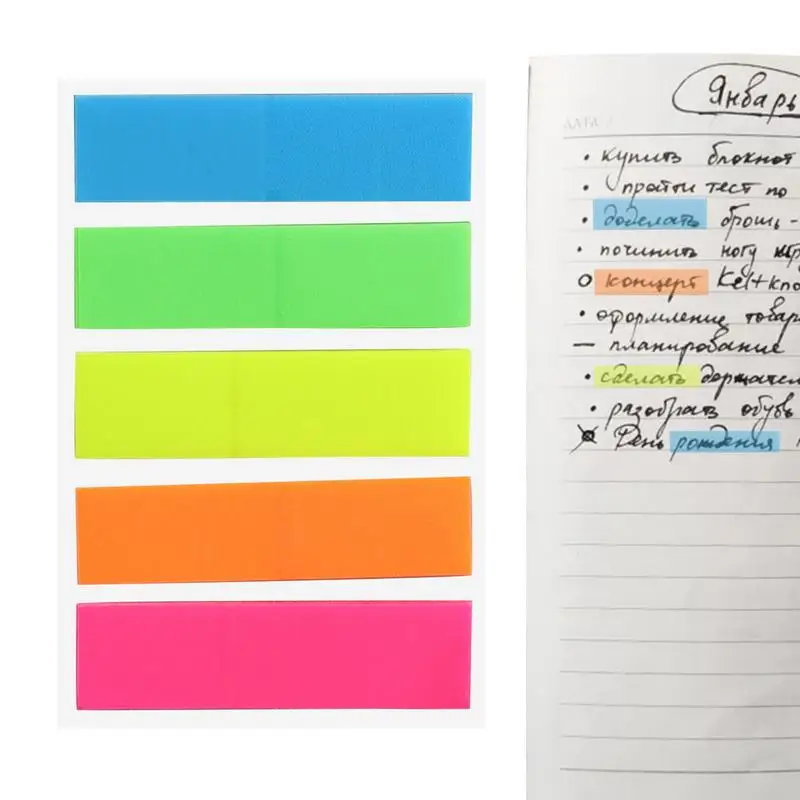 Январь
ДАТА
• купить блокнот
• пройти тест по
• доделать брошь -
• починить ногу
О концерт Kel+кло
• оформление товар
— планирование
• сделать держател
• разобрать обувь
День рождения